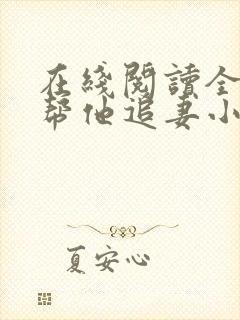 在綫閱讀全
幫他追妻小
夏安心